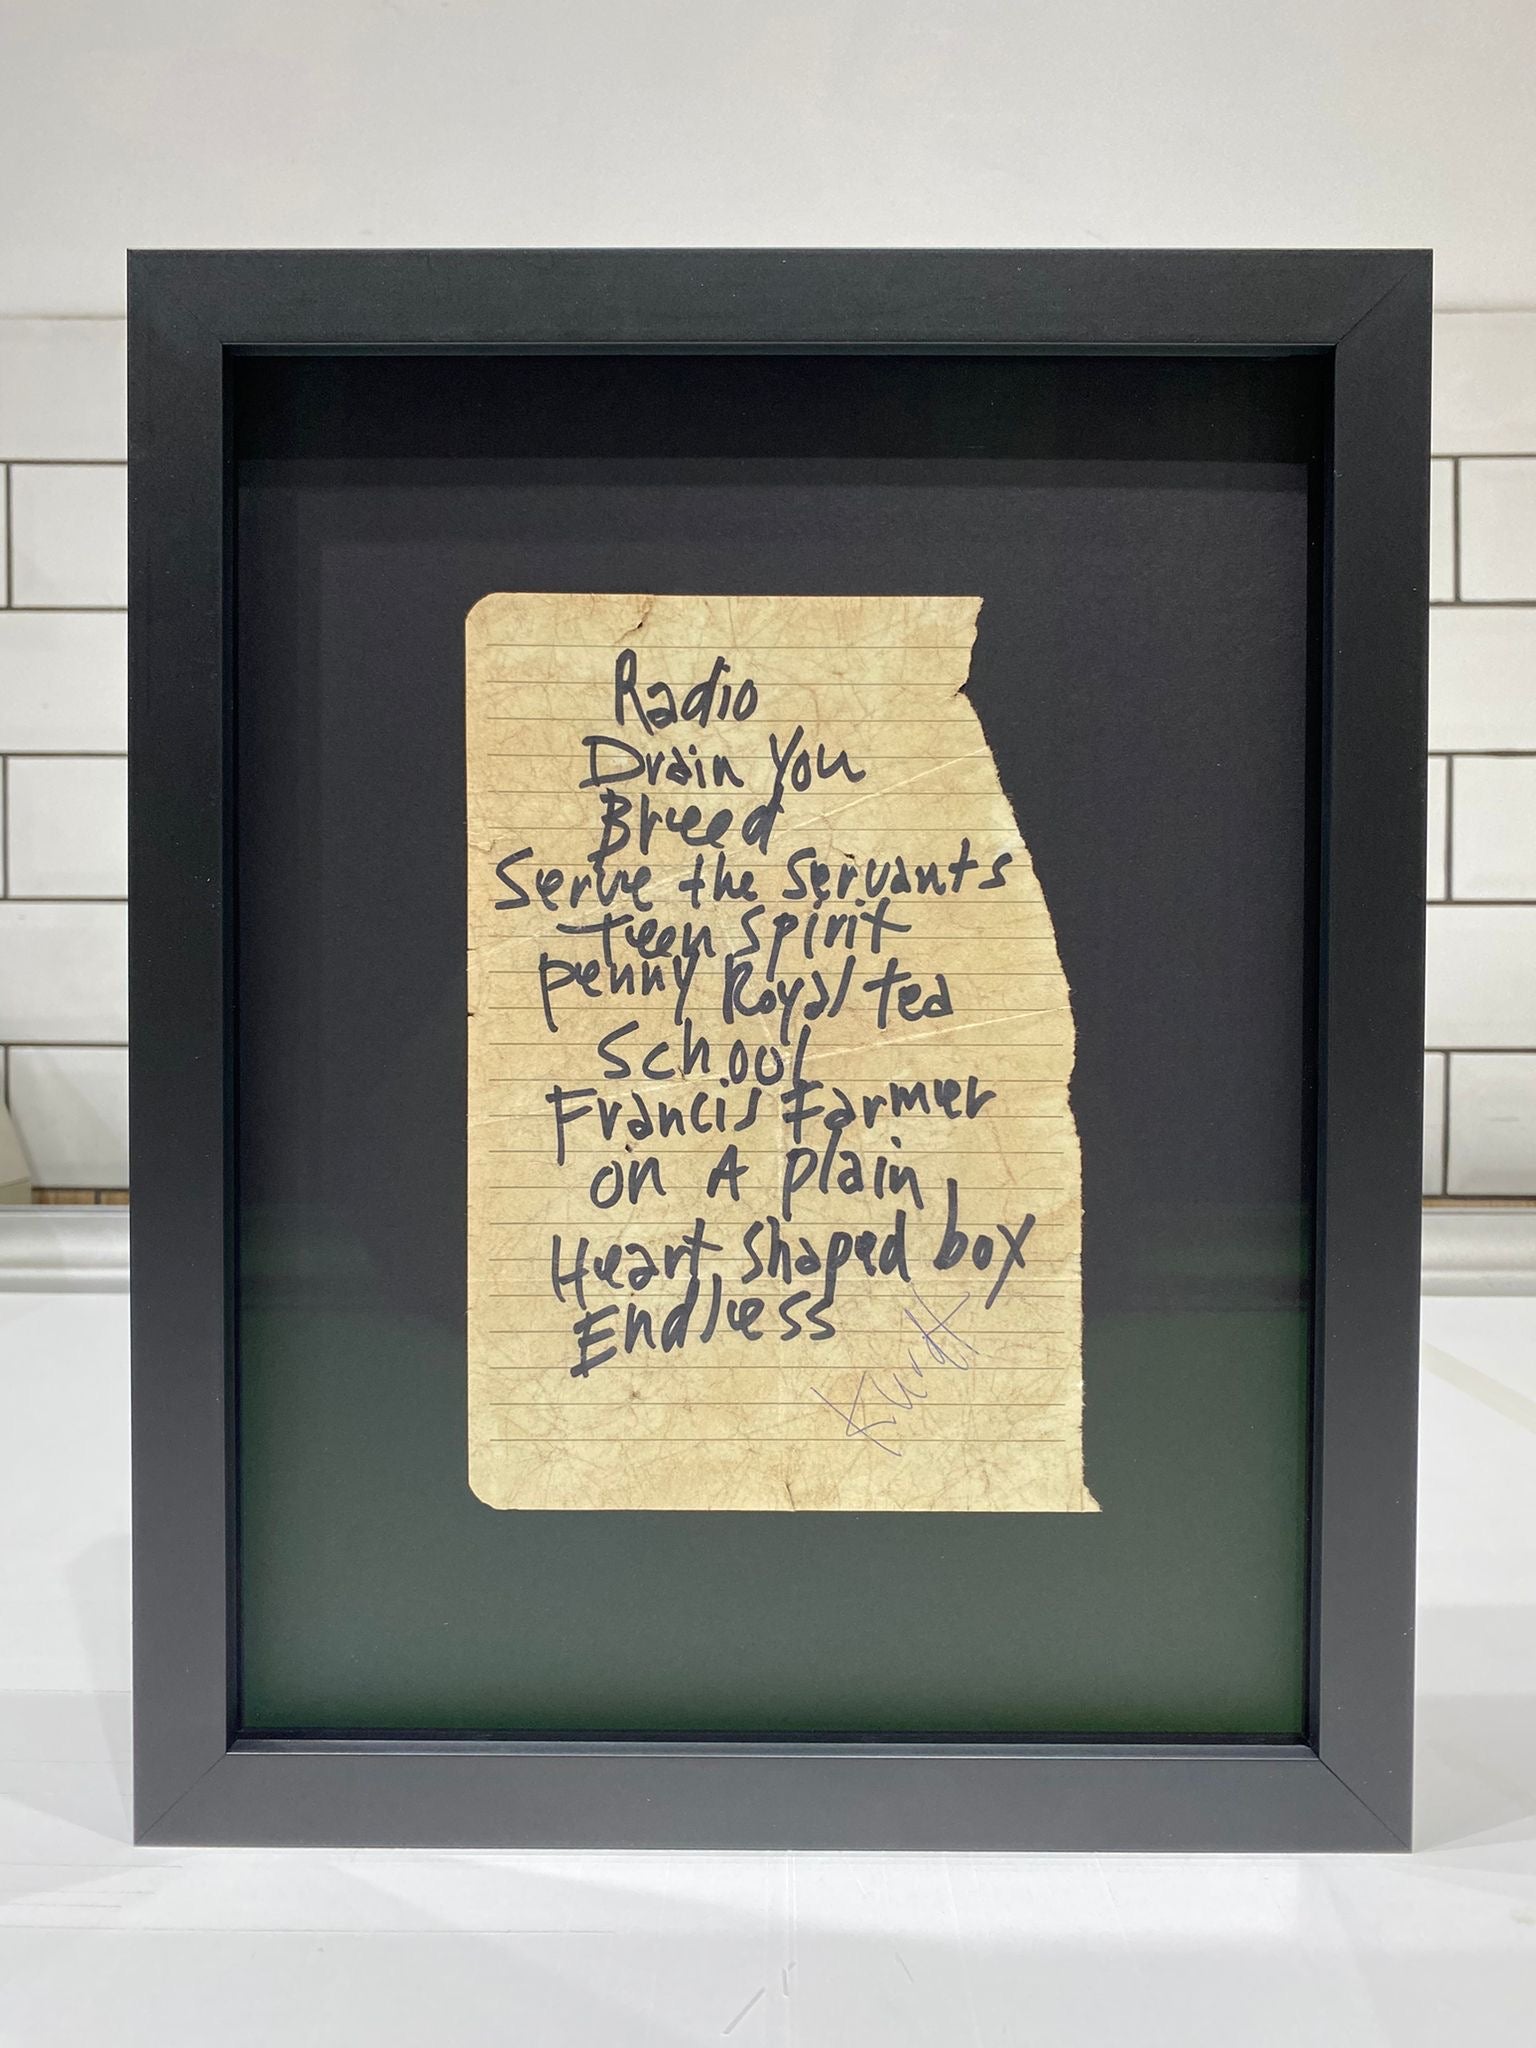 Radio
Drain You
Breed
Serve the Servants
teen spirit
Penny Royal tea
School
Francis Farmer
on A plain
Heart shaped box
Endless
Kurdt